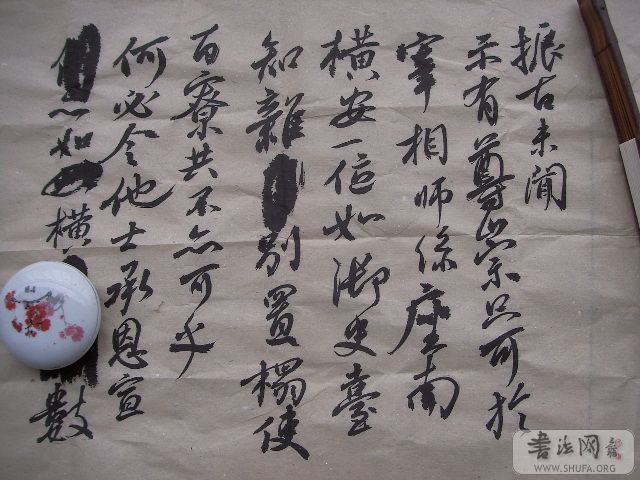 振古未聞
示有尊崇只可於
宰相師保座南
橫安一位如御史臺
知雜別置榻使
百寮共不亦可乎
何必令他士承恩宣
亦如橫數
書法网
WWW.SHUFA.ORG